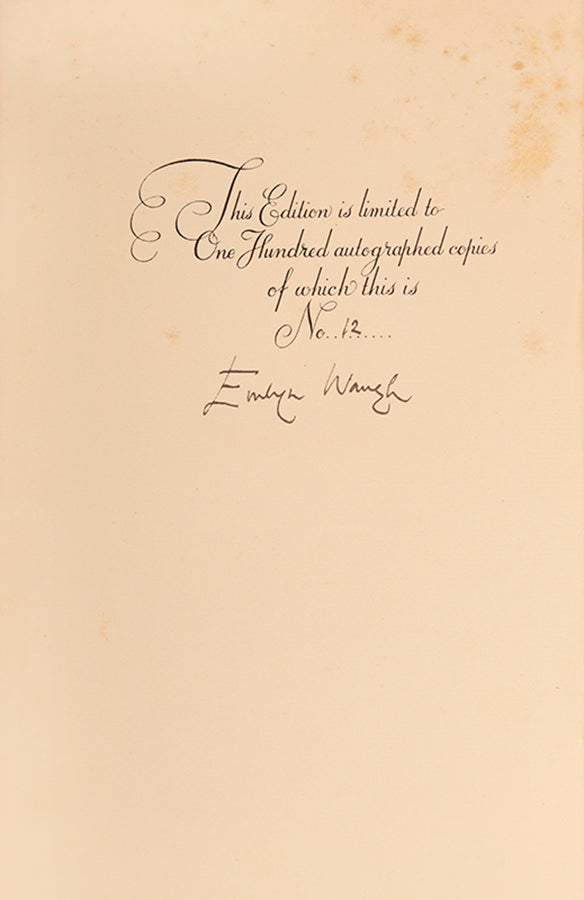 This Edition is limited to
One Hundred autographed copies
of which this is
No..12.....
Evelyn Waugh